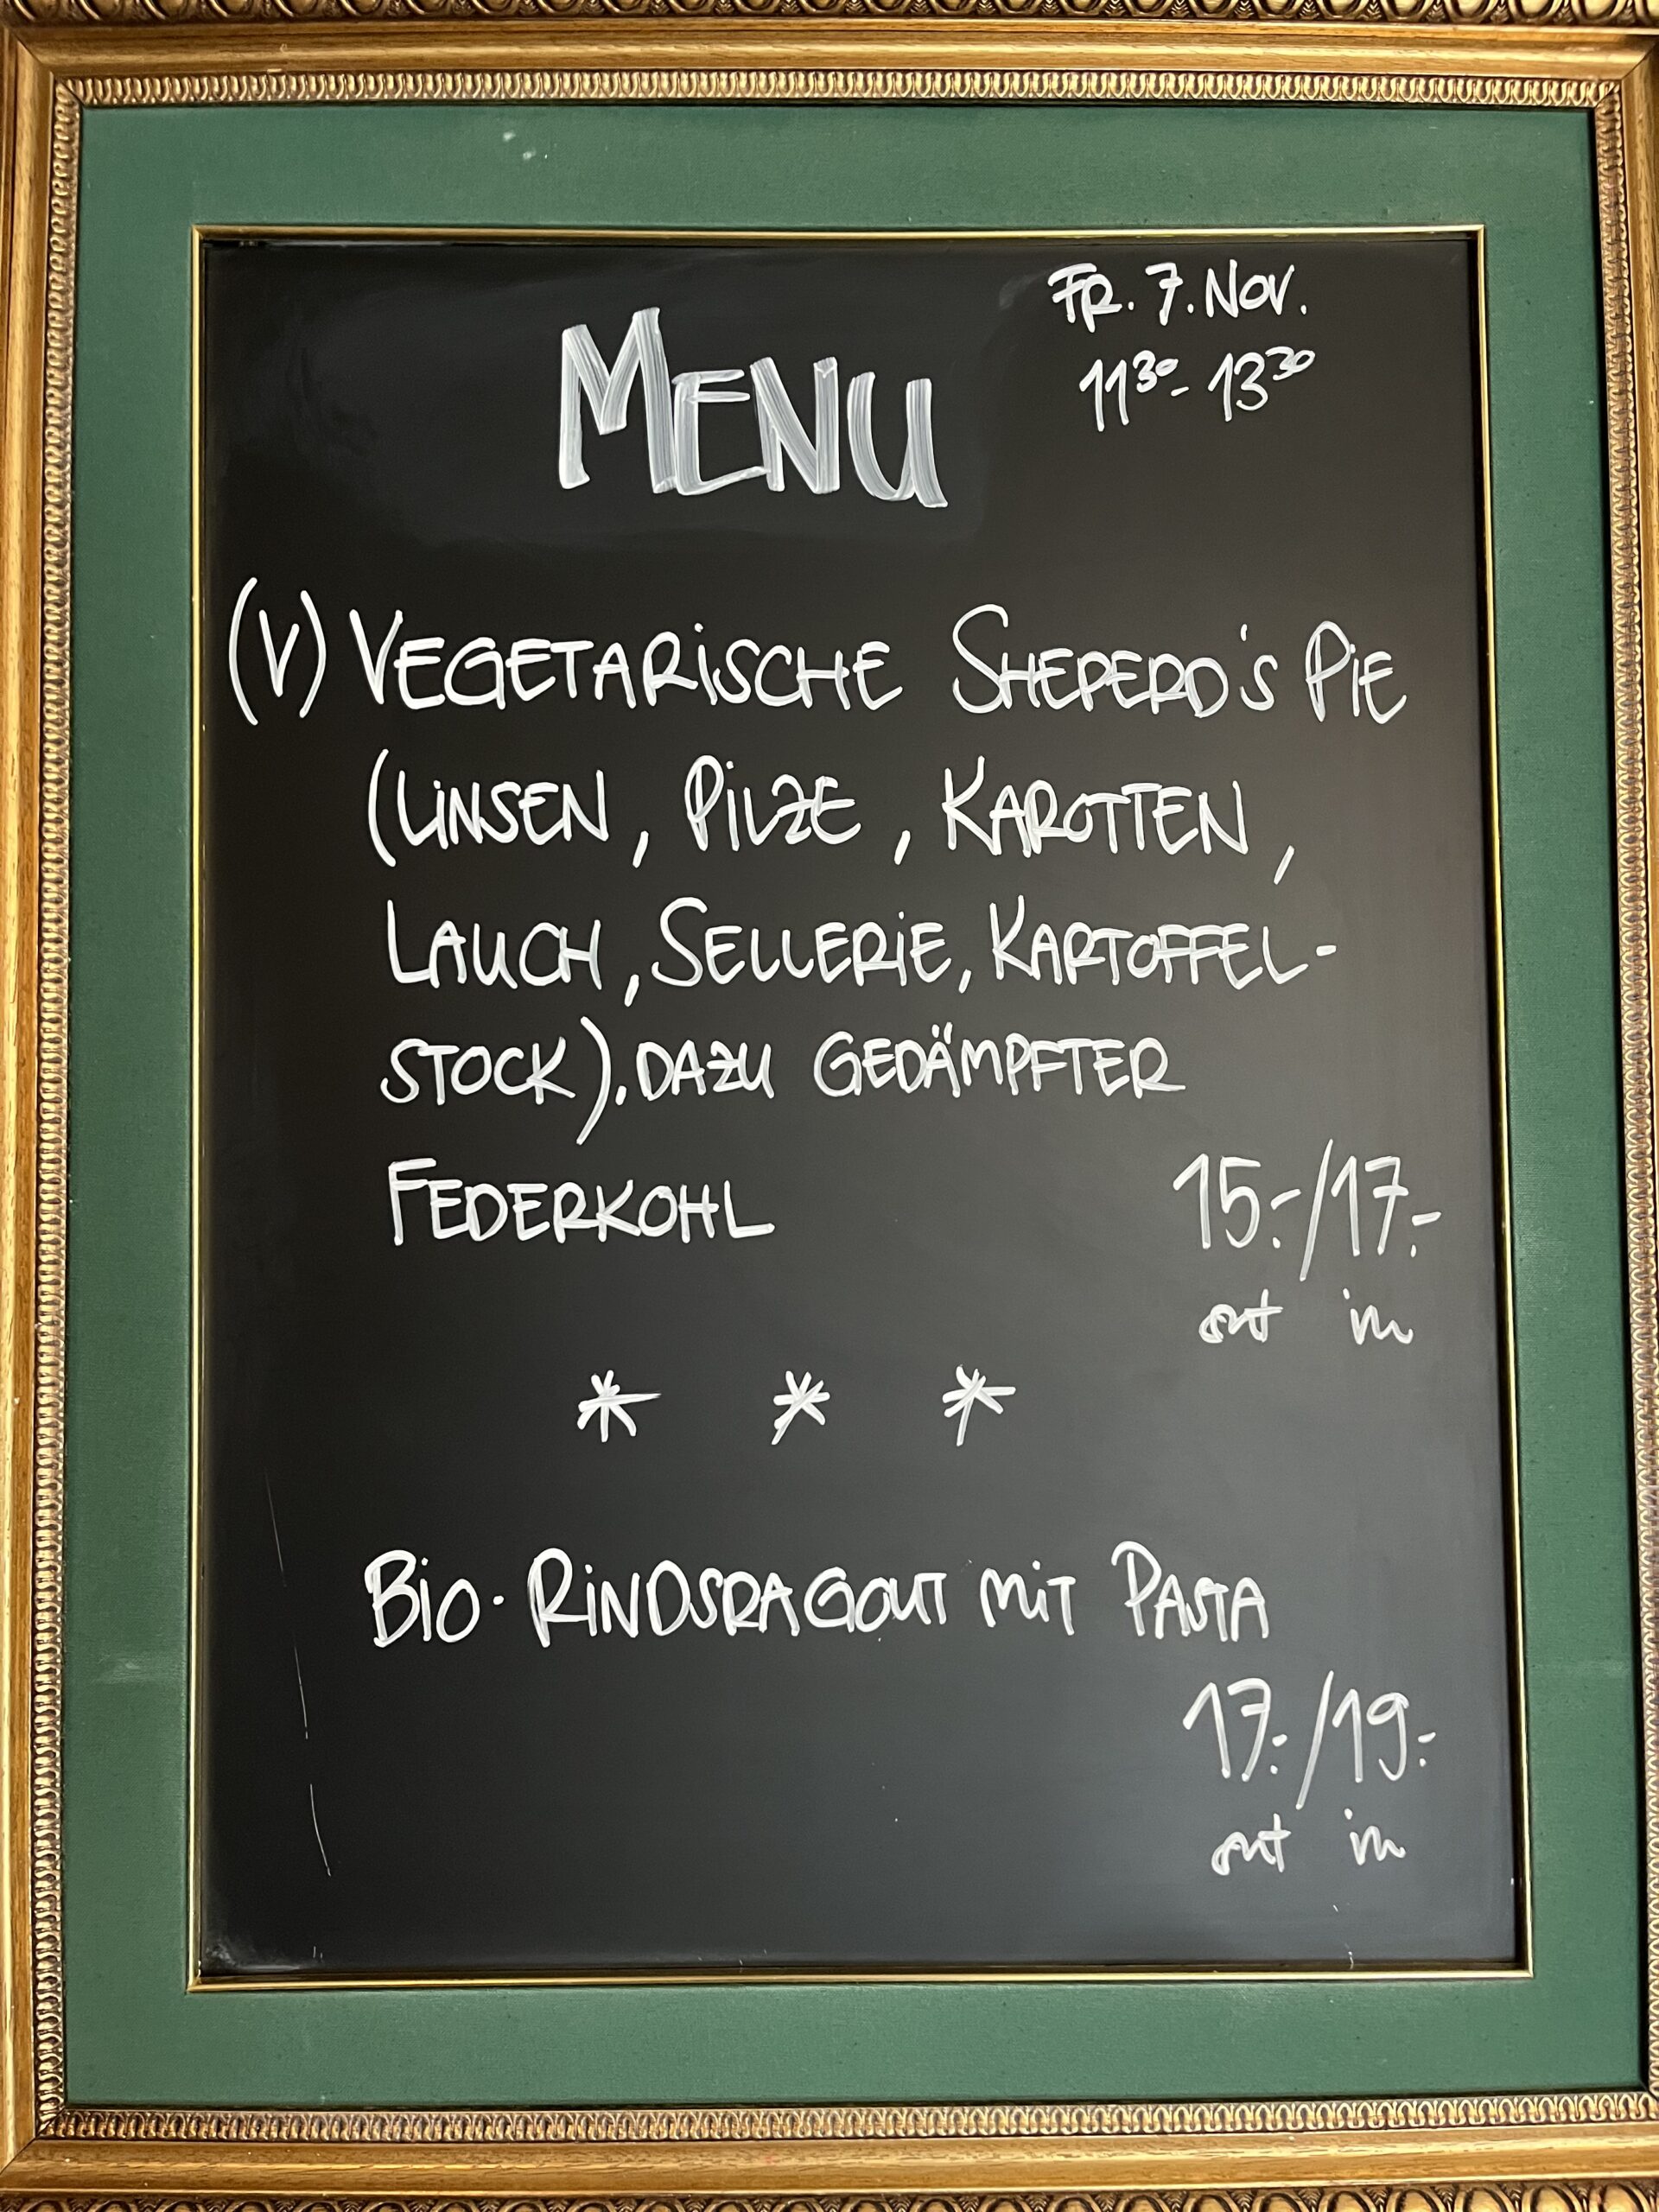 FR. 7. NOV.
11³⁰- 13³⁰
MENU
(V) VEGETARISCHE SHEPERD'S PIE
(LINSEN, PILZE, KAROTTEN,
LAUCH, SELLERIE, KARTOFFEL-
STOCK). DAZU GEDÄMPFTER
FEDERKOHL 15.-/17.-
out in
* * *
BIO-RINDSRAGOUT MIT PASTA
17.-/19.-
out in